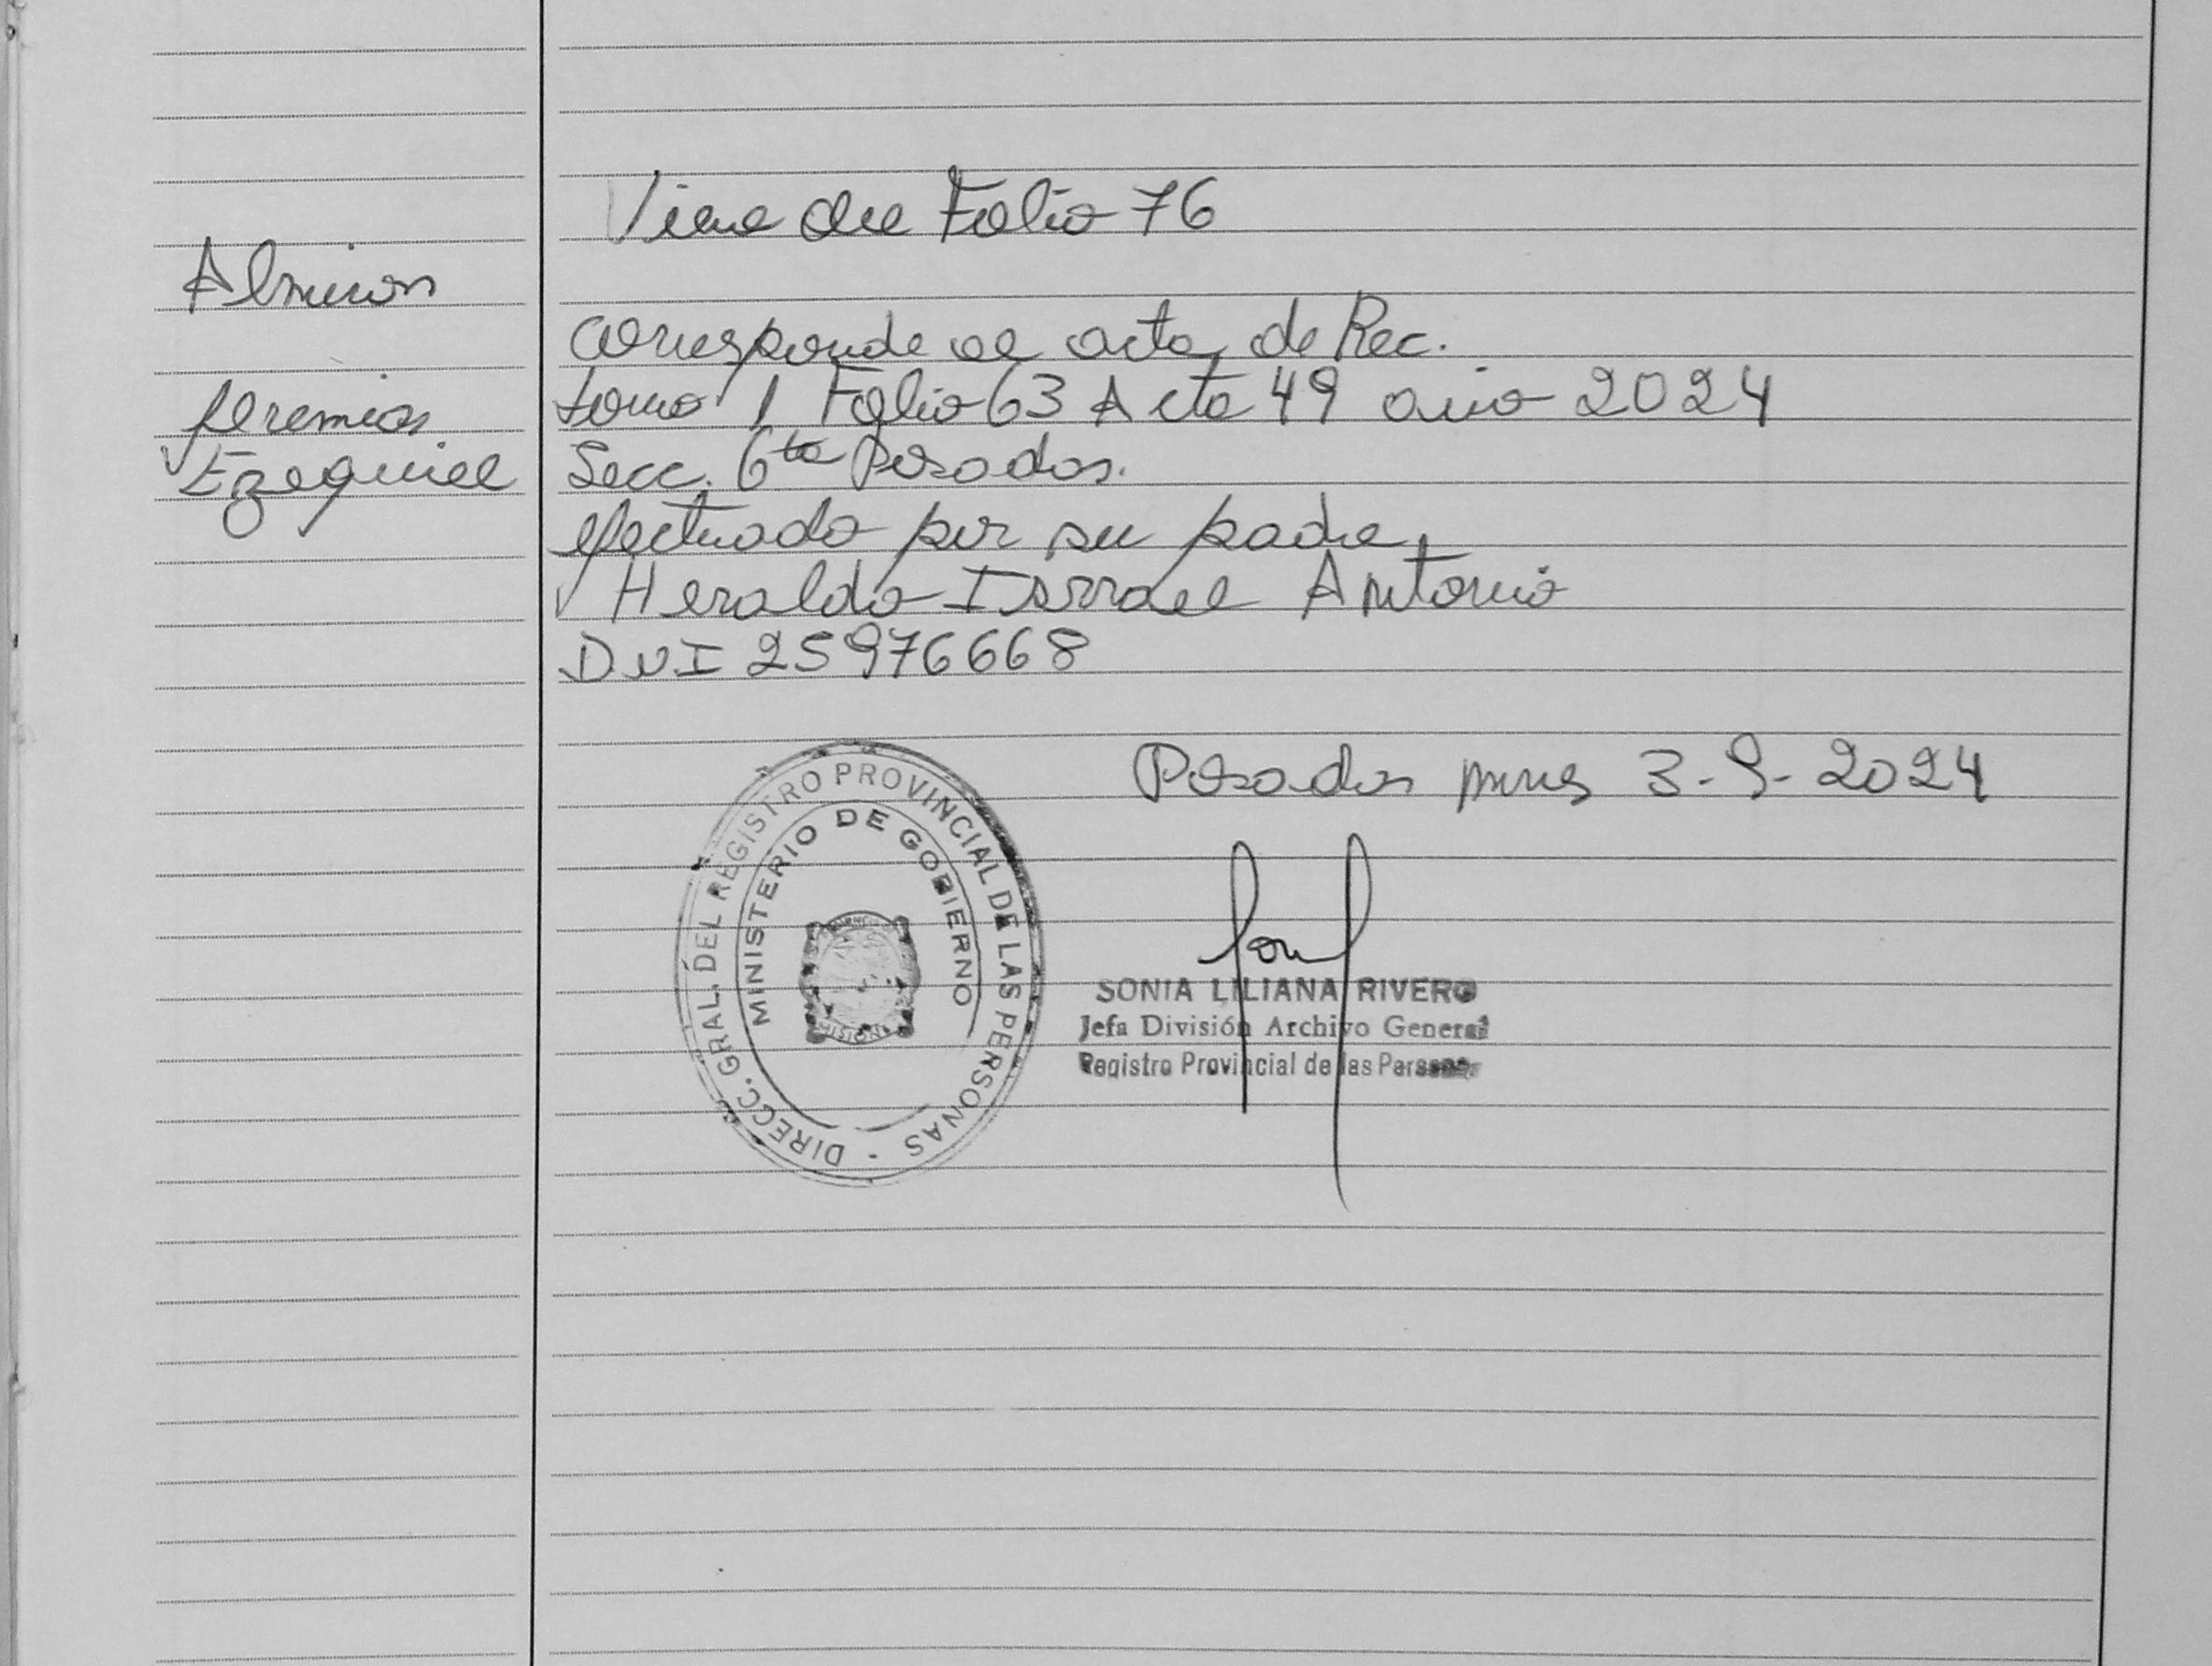 Viene del Folio 76
Almiron
corresponde al acta de Rec.
Jeremias
tomo 1 Folio 63 Acta 49 año 2024
Ezequiel
Secc. 6ta Posadas.
efectuado por su padre,
Heraldo Isrrael Antonio
DNI 25976668
Posadas mnes 3-9-2024
DIRECC. GRAL. DEL REGISTRO PROVINCIAL DE LAS PERSONAS
MINISTERIO DE GOBIERNO
MISIONES
SONIA LILIANA RIVERO
Jefa División Archivo General
Registro Provincial de las Personas